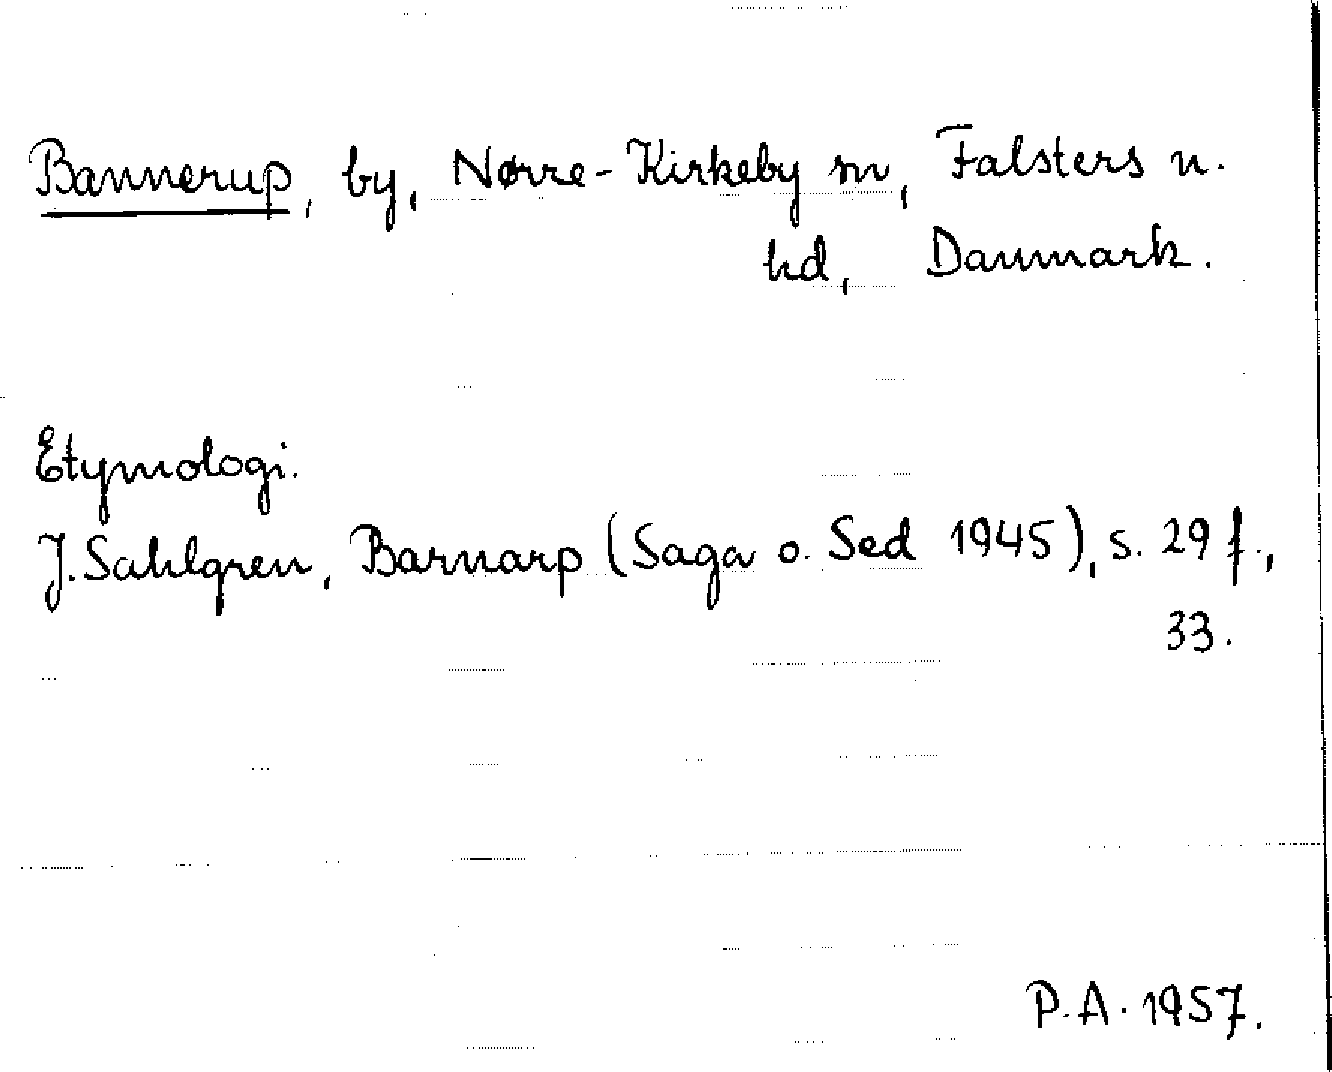 Bannerup, by, Nørre-Kirkeby sn, Falsters n.
hd, Danmark.
Etymologi.
J. Sahlgren, Barnarp (Saga o. Sed 1945), s. 29 f.,
33.
P.A. 1957.